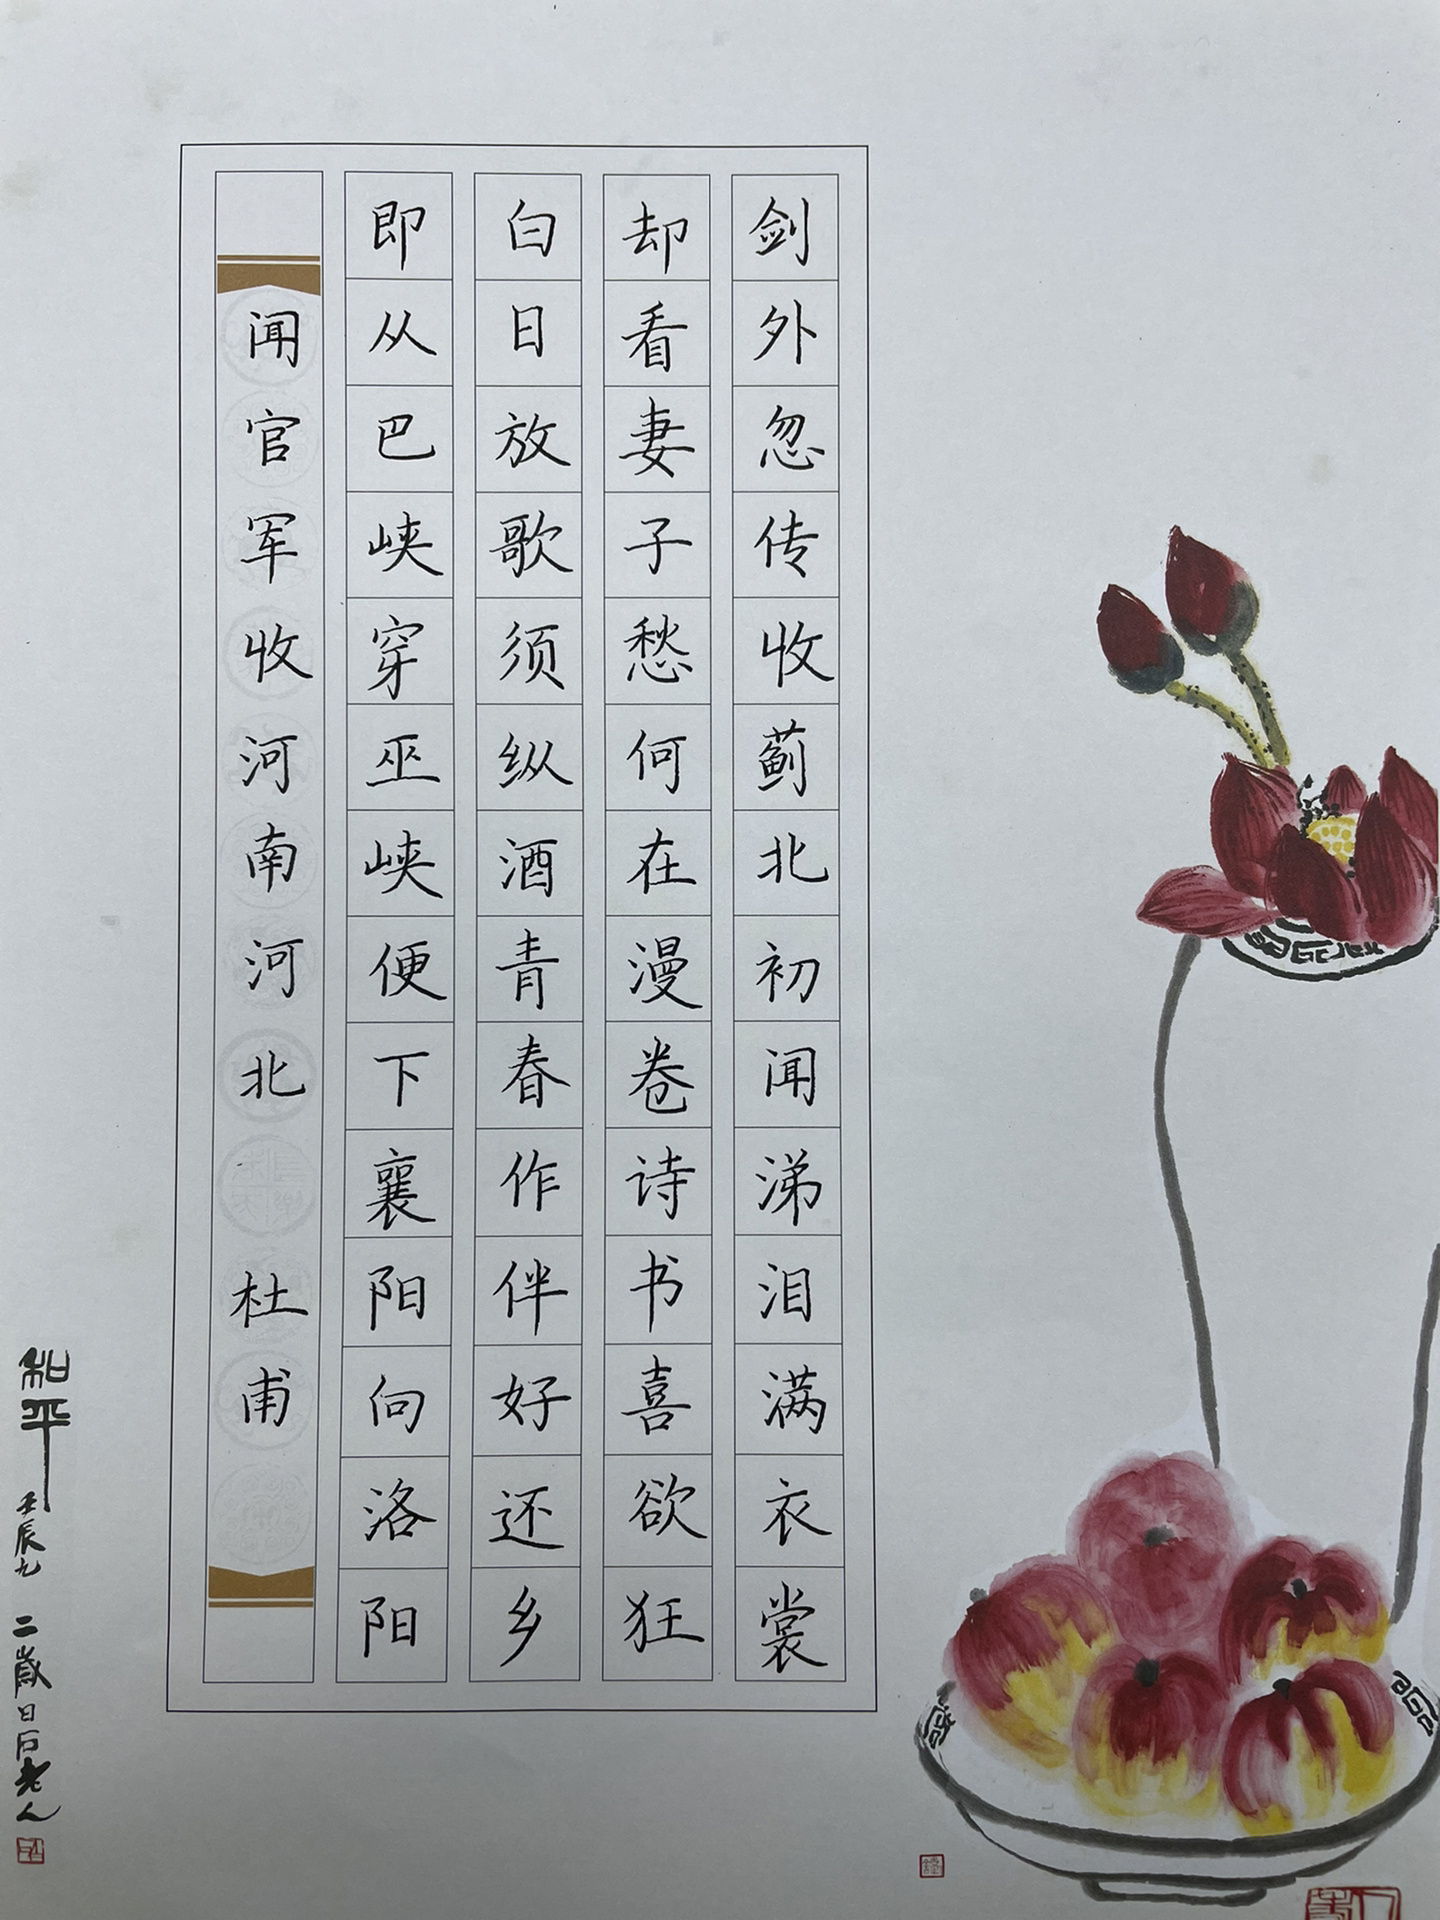 剑外忽传收蓟北初闻涕泪满衣裳
却看妻子愁何在漫卷诗书喜欲狂
白日放歌须纵酒青春作伴好还乡
即从巴峡穿巫峡便下襄阳向洛阳
闻官军收河南河北 杜甫
和平
壬辰九二岁白石老人